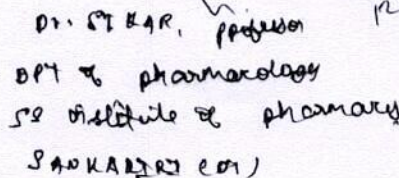 Dr. S T KAR, professor
DPT of pharmacology
SS institute of pharmacy
SANKARIRI (DT)